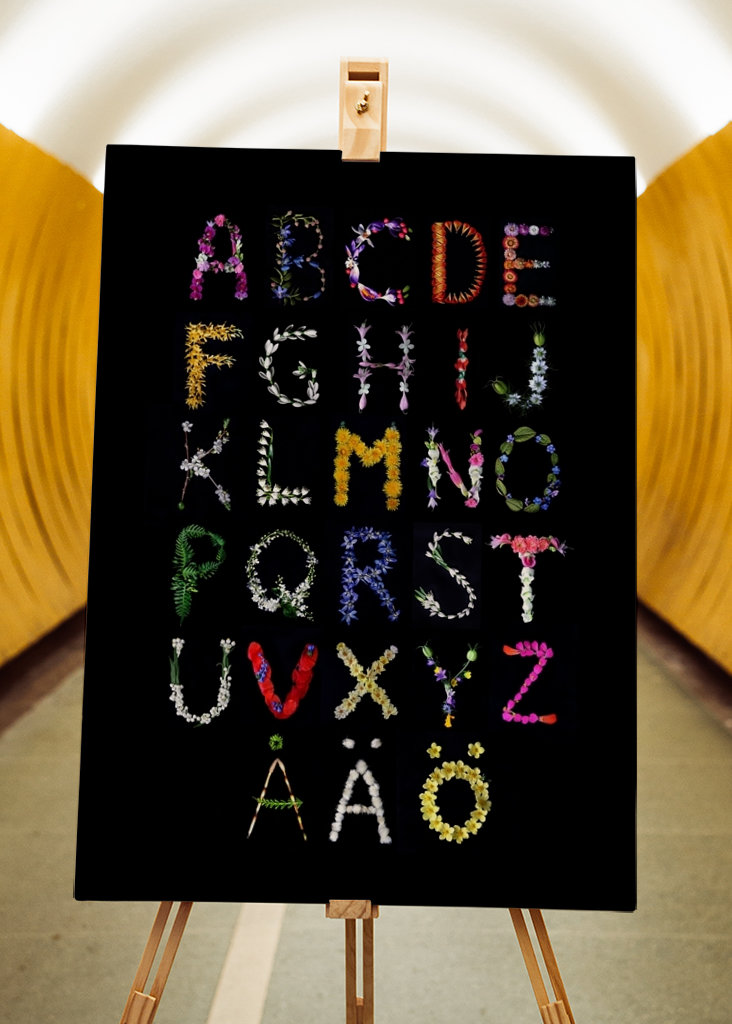 A B C D E
F G H I J
K L M N O
P Q R S T
U V X Y Z
Å Ä Ö